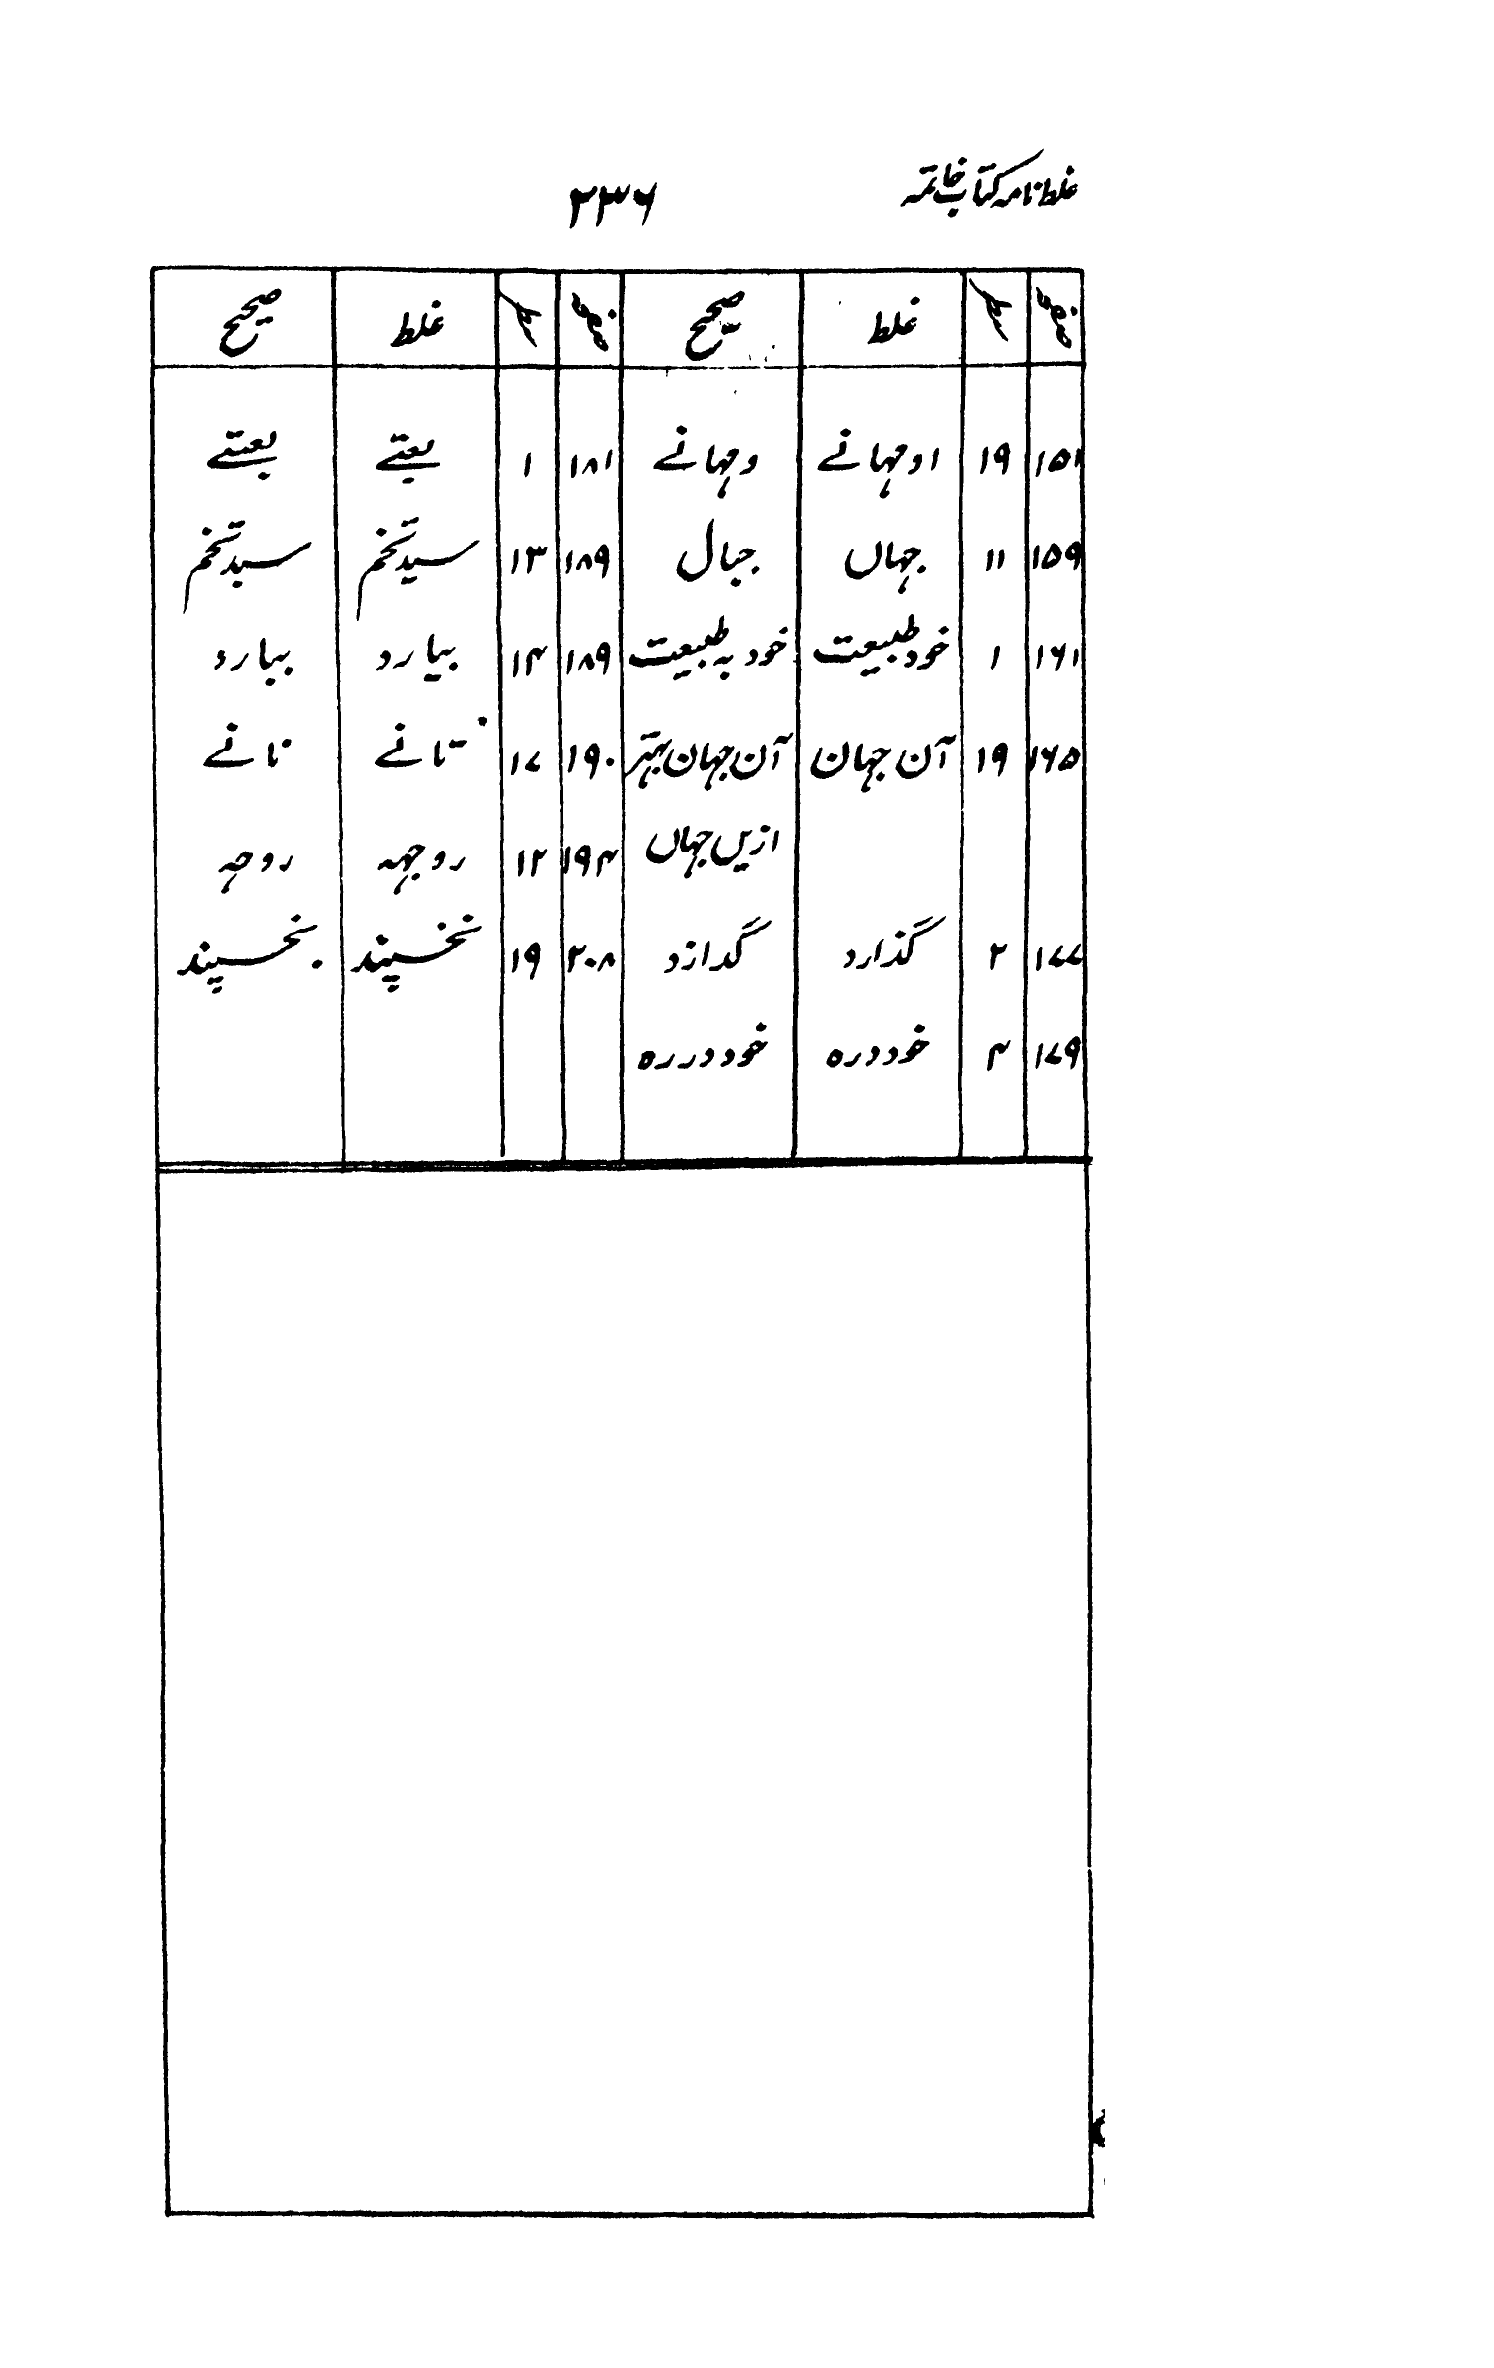 غلط نامہ کتاب خاتمہ ۲۳۶
صفحہ سطر غلط صحیح صفحہ سطر غلط صحیح
۱۵۱ ۱۹ او مہمانے ومہمانے ۱۸۱ ۱
۱۵۹ ۱۱ جہاں جبال ۱۸۹ ۱۳ سید تخم سبد تخم
۱۶۱ ۱ خود طبیعت خود بہ طبیعت ۱۸۹ ۱۴ بیارد ببارد
۱۶۵ ۱۹ آن جہان آن جہان بہتر ۱۹۰ ۱۷ تانے نانے
ازیں جہاں ۱۹۴ ۱۲ روجہہ روجہ
۱۷۷ ۲ گذارد گدازد ۲۰۸ ۱۹ نخسپند بخسپند
۱۷۹ ۴ خود درہ خود در رہ